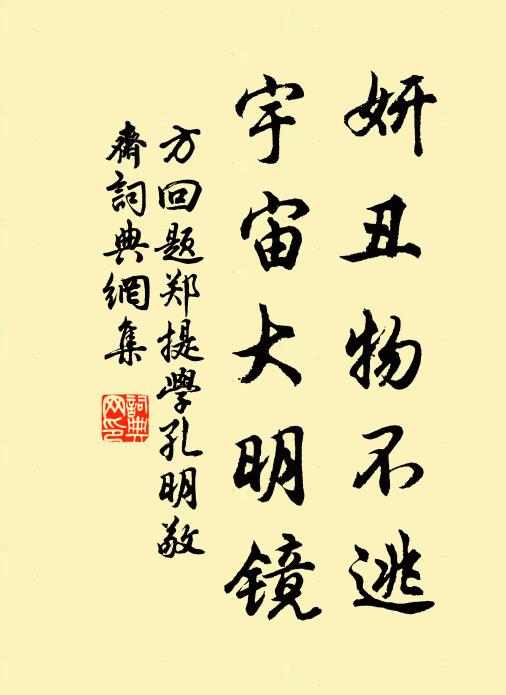 妍丑物不逃
宇宙大明镜
方回题郑提學孔明敬
齋詞典網集
詞典
网印